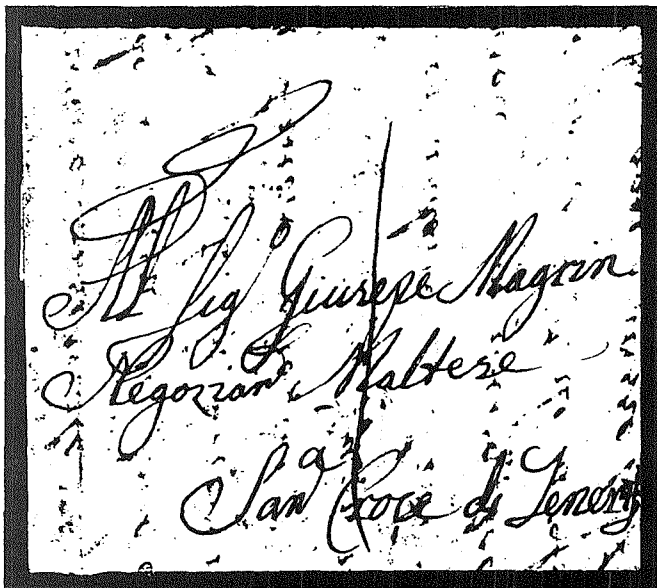 Al Sigo Giusepe Magrin
Negozianᵉ Maltese
Sanᵃ Croce di Tenerife